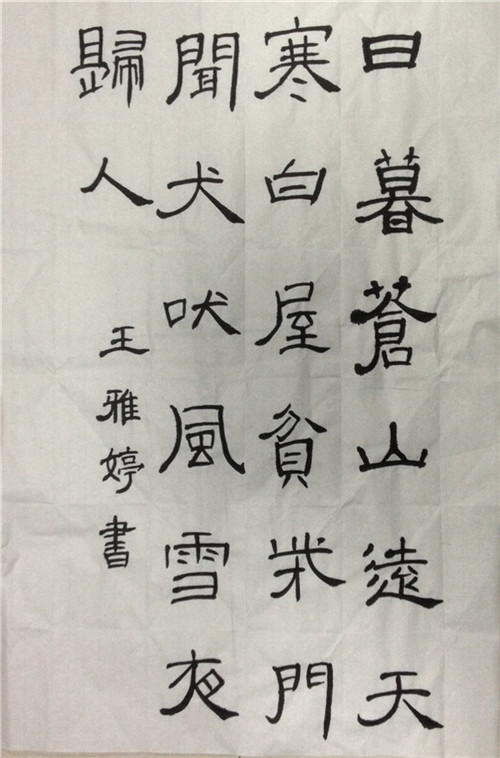 日暮蒼山遠天
寒白屋貧柴門
聞犬吠風雪夜
歸人
王雅婷書